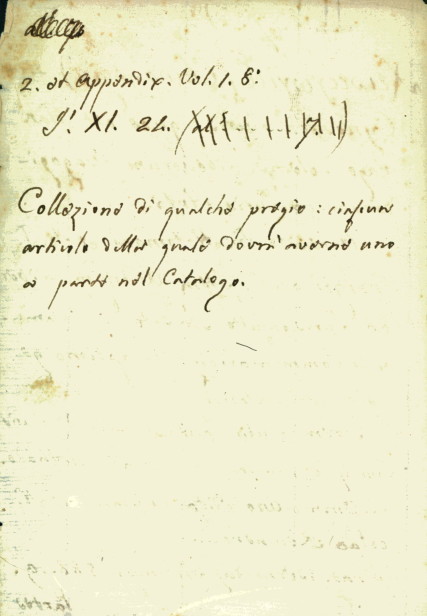 2. et appendix. Vol. 1. 8:
XI. 22.
Collezione di qualche pregio: ciascun
articolo della quale dovrà averne uno
a parte nel Catalogo.